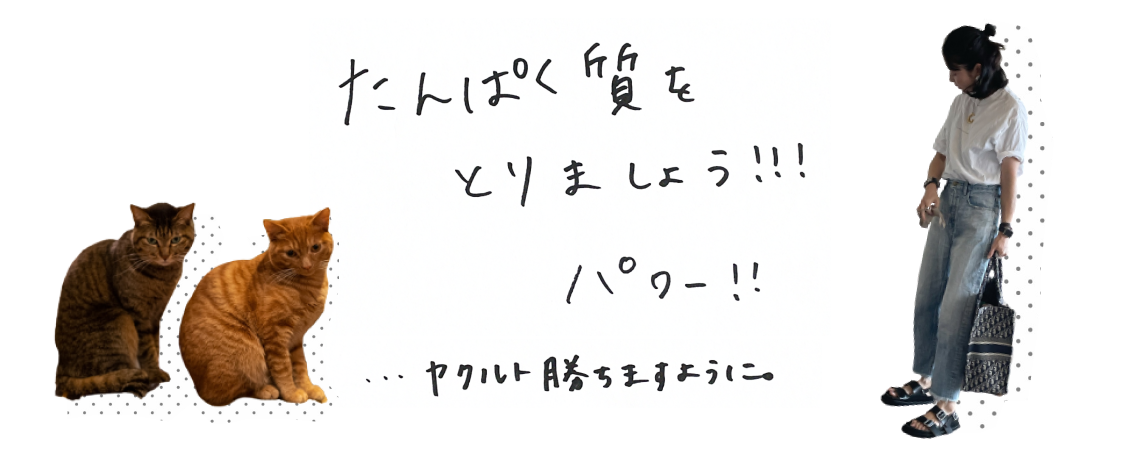 たんぱく質を
とりましょう!!!
パワー!!
...ヤクルト勝ちますように。